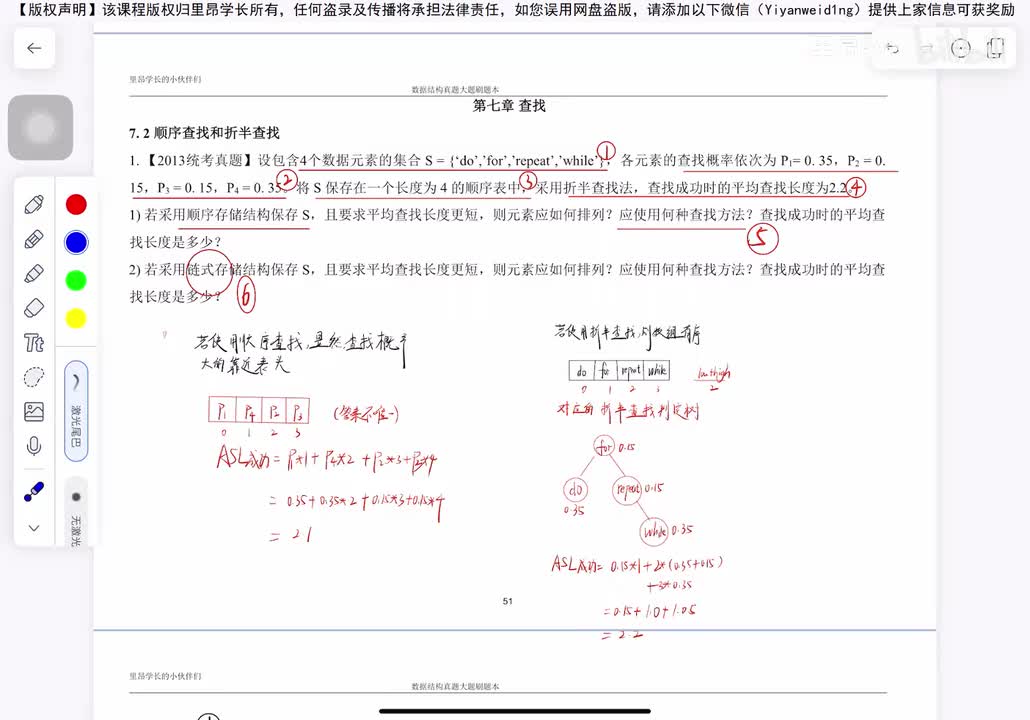 【版权声明】该课程版权归里昂学长所有，任何盗录及传播将承担法律责任，如您误用网盘盗版，请添加以下微信（Yiyanweid1ng）提供上家信息可获奖励
里昂学长的小伙伴们
数据结构真题大题刷题本
第七章 查找
7. 2 顺序查找和折半查找
1. 【2013统考真题】设包含4个数据元素的集合 S = {‘do’,’for’,’repeat’,’while’}，各元素的查找概率依次为 P₁= 0. 35，P₂ = 0.
15，P₃ = 0. 15，P₄ = 0. 35。将 S 保存在一个长度为 4 的顺序表中，采用折半查找法，查找成功时的平均查找长度为2.2。
① ② ③ ④
1) 若采用顺序存储结构保存 S，且要求平均查找长度更短，则元素应如何排列？应使用何种查找方法？查找成功时的平均查
找长度是多少？
⑤
2) 若采用链式存储结构保存 S，且要求平均查找长度更短，则元素应如何排列？应使用何种查找方法？查找成功时的平均查
找长度是多少？
⑥
若使用顺序查找,显然查找概率
大的靠近表头
P₁ P₄ P₂ P₃ (答案不唯一)
0 1 2 3
ASL成功= P₁*1+ P₄*2 +P₂*3+P₃*4
= 0.35+0.35*2+0.15*3+0.15*4
= 2.1
若使用折半查找,则数组有序
do for repeat while
0 1 2 3
low+high
2
对应的 折半查找判定树
for 0.15
do repeat 0.15
0.35
while 0.35
ASL成功= 0.15*1+2*(0.35+0.15)
+3*0.35
=0.15+1.0+1.05
= 2.2
51
里昂学长的小伙伴们
数据结构真题大题刷题本
Tt
激光尾巴
无激光